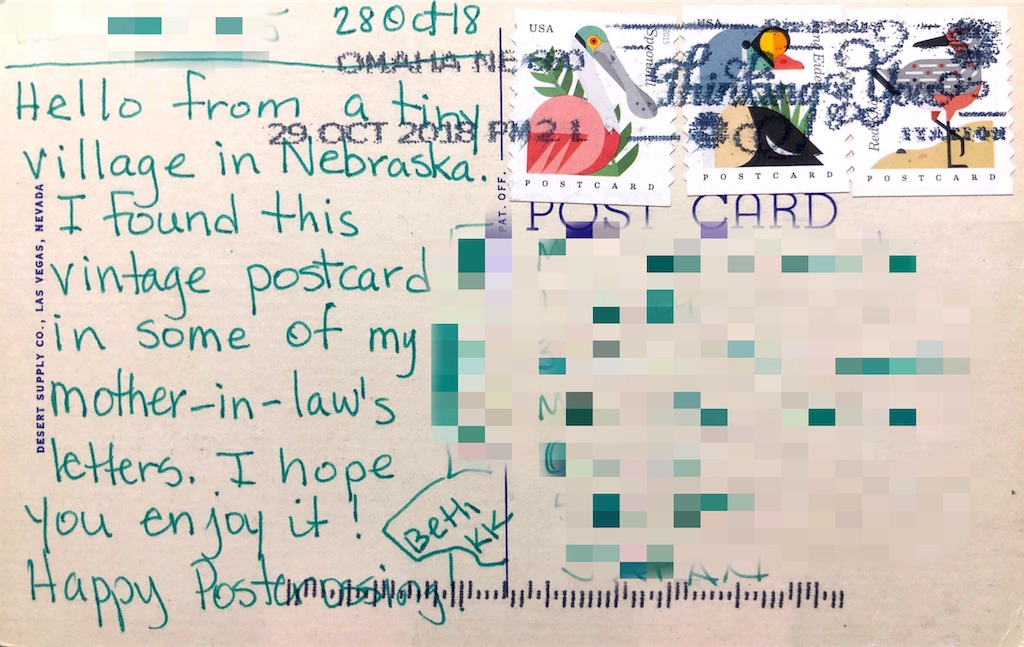 28 Oct 18
OMAHA NE
29 OCT 2018 PM 2 L
Hello from a tiny
village in Nebraska.
I found this
vintage postcard
in some of my
mother-in-law's
letters. I hope
you enjoy it!
Happy Postcrossing!
Beth
KK
DESERT SUPPLY CO., LAS VEGAS, NEVADA
PAT. OFF.
USA
Spoonbill
POSTCARD
USA
King Eider
POSTCARD
POSTCARD
Thinking of You
POST CARD